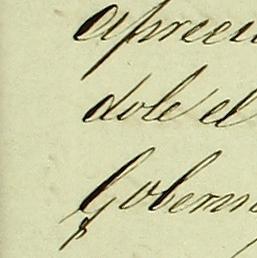 apreciu
dole el
Gobern